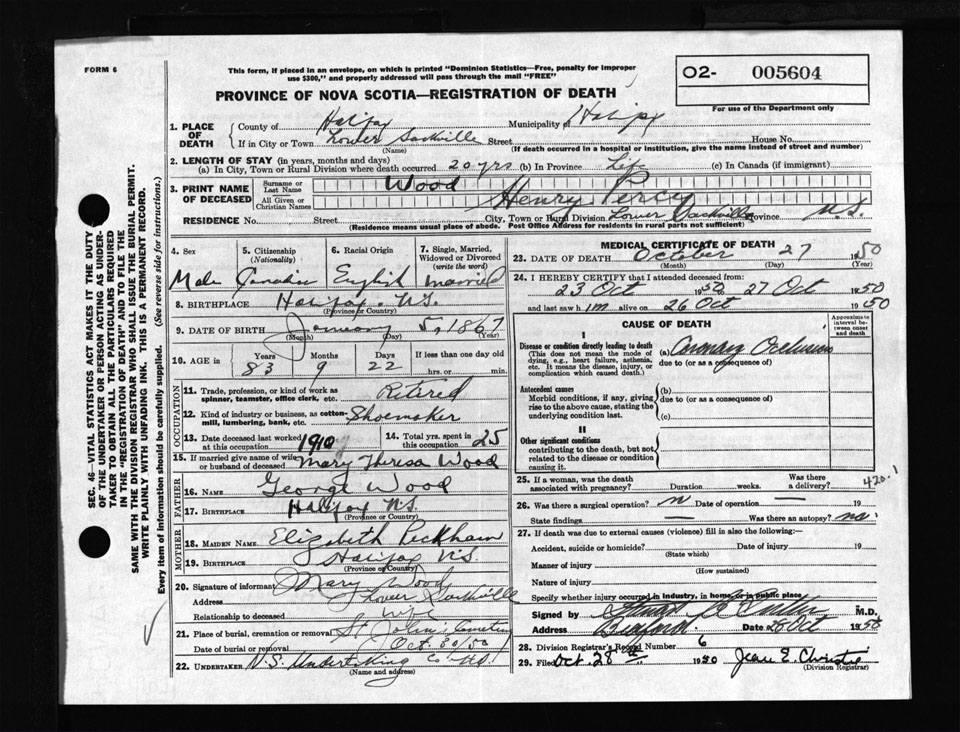 FORM 6
This form, if placed in an envelope, on which is printed "Dominion Statistics—Free, penalty for improper
use $300," and properly addressed will pass through the mail "FREE"
O2- 005604
For use of the Department only
PROVINCE OF NOVA SCOTIA—REGISTRATION OF DEATH
1. PLACE OF DEATH County of Halifax Municipality of Halifax
If in City or Town Lower Sackville Street House No.
(Name) (If death occurred in a hospital or institution, give the name instead of street and number)
2. LENGTH OF STAY (in years, months and days)
(a) In City, Town or Rural Division where death occurred 20 yrs (b) In Province Life (c) In Canada (if immigrant)
3. PRINT NAME OF DECEASED Surname or Last Name Wood
All Given or Christian Names Henry Percy
RESIDENCE No. Street City, Town or Rural Division Lower Sackville Province N.S.
(Residence means usual place of abode. Post Office Address for residents in rural parts not sufficient)
4. Sex 5. Citizenship (Nationality) 6. Racial Origin 7. Single, Married, Widowed or Divorced (write the word)
Male Canadian English Married
8. BIRTHPLACE Halifax, N.S.
(Province or Country)
9. DATE OF BIRTH January 5, 1867
(Month) (Day) (Year)
10. AGE in Years Months Days If less than one day old
83 9 22 hrs. or min.
OCCUPATION
11. Trade, profession, or kind of work as spinner, teamster, office clerk, etc. Retired
12. Kind of industry or business, as cotton-mill, lumbering, bank, etc. Shoemaker
13. Date deceased last worked at this occupation 1910
14. Total yrs. spent in this occupation 25
15. If married give name of wife or husband of deceased Mary Theresa Wood
FATHER
16. NAME George Wood
17. BIRTHPLACE Halifax N.S.
(Province or Country)
MOTHER
18. MAIDEN NAME Elizabeth Peckham
19. BIRTHPLACE Halifax N.S.
(Province or Country)
20. Signature of informant Mary Wood
Address Lower Sackville
Relationship to deceased wife
21. Place of burial, cremation or removal St John's Cemetery
Date of burial or removal Oct. 30/50
22. UNDERTAKER N.S. Undertaking Co
(Name and address)
MEDICAL CERTIFICATE OF DEATH
23. DATE OF DEATH October 27 1950
(Month) (Day) (Year)
24. I HEREBY CERTIFY that I attended deceased from
23 Oct 1950 to 27 Oct 1950
and last saw him alive on 26 Oct 1950
CAUSE OF DEATH
Approximate interval between onset and death
I
Disease or condition directly leading to death (a) Coronary Occlusion
(This does not mean the mode of dying, e.g., heart failure, asthenia, etc. It means the disease, injury, or complication which caused death.)
due to (or as a consequence of)
Antecedent causes
Morbid conditions, if any, giving rise to the above cause, stating the underlying condition last.
(b)
due to (or as a consequence of)
(c)
II
Other significant conditions
contributing to the death, but not related to the disease or condition causing it.
25. If a woman, was the death associated with pregnancy? Duration weeks. Was there a delivery?
420.1
26. Was there a surgical operation? n Date of operation 19
State findings Was there an autopsy? no
27. If death was due to external causes (violence) fill in also the following:
Accident, suicide or homicide? Date of injury 19
(State which)
Manner of injury
(How sustained)
Nature of injury
Specify whether injury occurred in industry, in home, or in public place
Signed by M.D.
Address Bedford Date 28 Oct 1950
28. Division Registrar's Record Number 6
29. Filed Oct. 28th 1950 Jean E. Christie
(Division Registrar)
SEC. 46—VITAL STATISTICS ACT MAKES IT THE DUTY
OF THE UNDERTAKER OR PERSON ACTING AS UNDER-
TAKER TO OBTAIN ALL THE PARTICULARS REQUIRED
IN THE "REGISTRATION OF DEATH" AND TO FILE THE
SAME WITH THE DIVISION REGISTRAR WHO SHALL ISSUE THE BURIAL PERMIT.
WRITE PLAINLY WITH UNFADING INK. THIS IS A PERMANENT RECORD.
Every item of information should be carefully supplied. (See reverse side for instructions.)